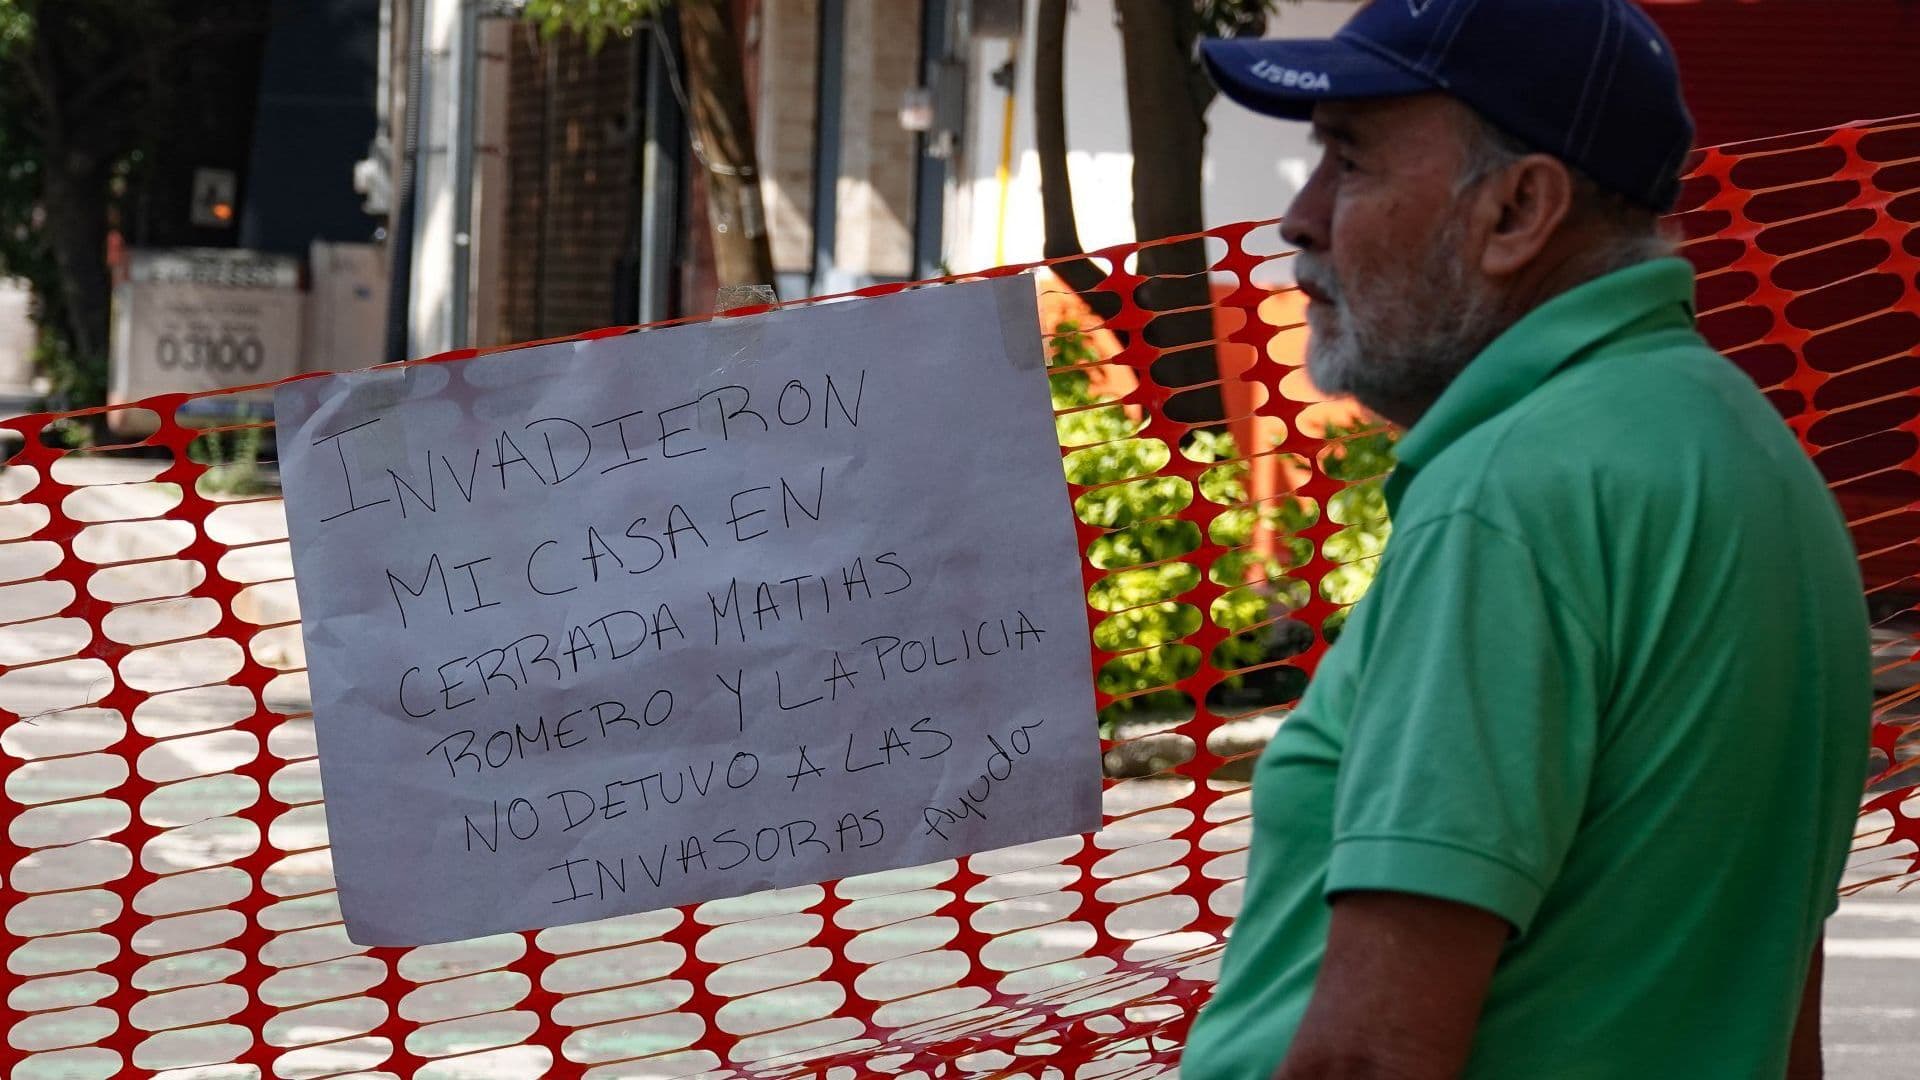 LISBOA
03100
INVADIERON
MI CASA EN
CERRADA MATIAS
ROMERO Y LA POLICIA
NO DETUVO A LAS
INVASORAS Ayuda